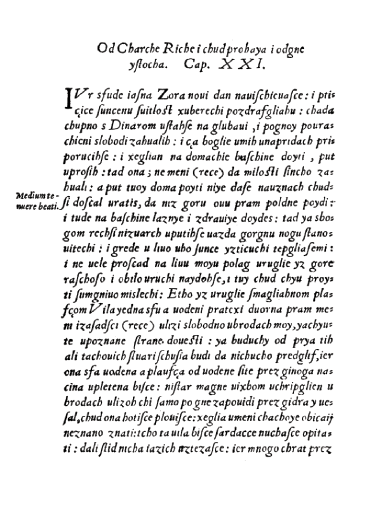 Od Charche Riche i chud prohaya i odgne
ystocha. Cap. XXI.
IVr sfude iasna Zora noui dan nauischiєuasce : i pti-
çice suncenu suitlost xuberechi pozdrafgliahu : chada
chupno s Dinarom ustahse na glubaui , i pognoy poura-
chieni slobodi zahualih : i ça boglie umih unapridach pri-
porucihse : i xeglian na domachie baschine doyti , put
uprosih : tad ona ; ne meni (rece) da milosti sincho za-
huali : a put tuoy doma poyti niye dase nauznach chud-
Medium te-
nuere beati.
si doscal uratis, da niz goru ouu pram poldne poydi :
i tude na baschine laznye i zdrauiye doydes : tad ya sbo-
gom rechsi nizuarch uputihse uazda gorgnu nogu stano-
uitechi : i grede u liuo ubo sunce yzticuchi tepgliasemi :
i ne uele proscad na liuu moyu polag uruglie yz gore
raschoso i obtlo uruchi naydohse, i tuy chud chyu proy-
ti sumgniuo mislechi : Etho yz uruglie smagliahnom pla-
sçom Vila yedna sfu a uodeni pratexi duorna pram me-
ni izasadsci (rece) ulizi slobodno u brodach moy, ya chyu-
te upoznane strane douesti : ya buduchy od prya tih
ali tachouich stuari schusia budi da nichucho predglif, ier
ona sfa uodena a plausça od uodene site prez ginoga na-
cina upletena bisce : nistar magne uixbom uchripglien u
brodach ulizoh chi samo po gne zapouidi prez gidra y ue-
sal, chud ona hotisce plouisce: xeglia umeni chachoye obicaij
neznano znati: tcho ta uila bisce sardacce nucbasce opita-
ti : dali slid nicha tazich uztezasce : ier mnogo chrat prez